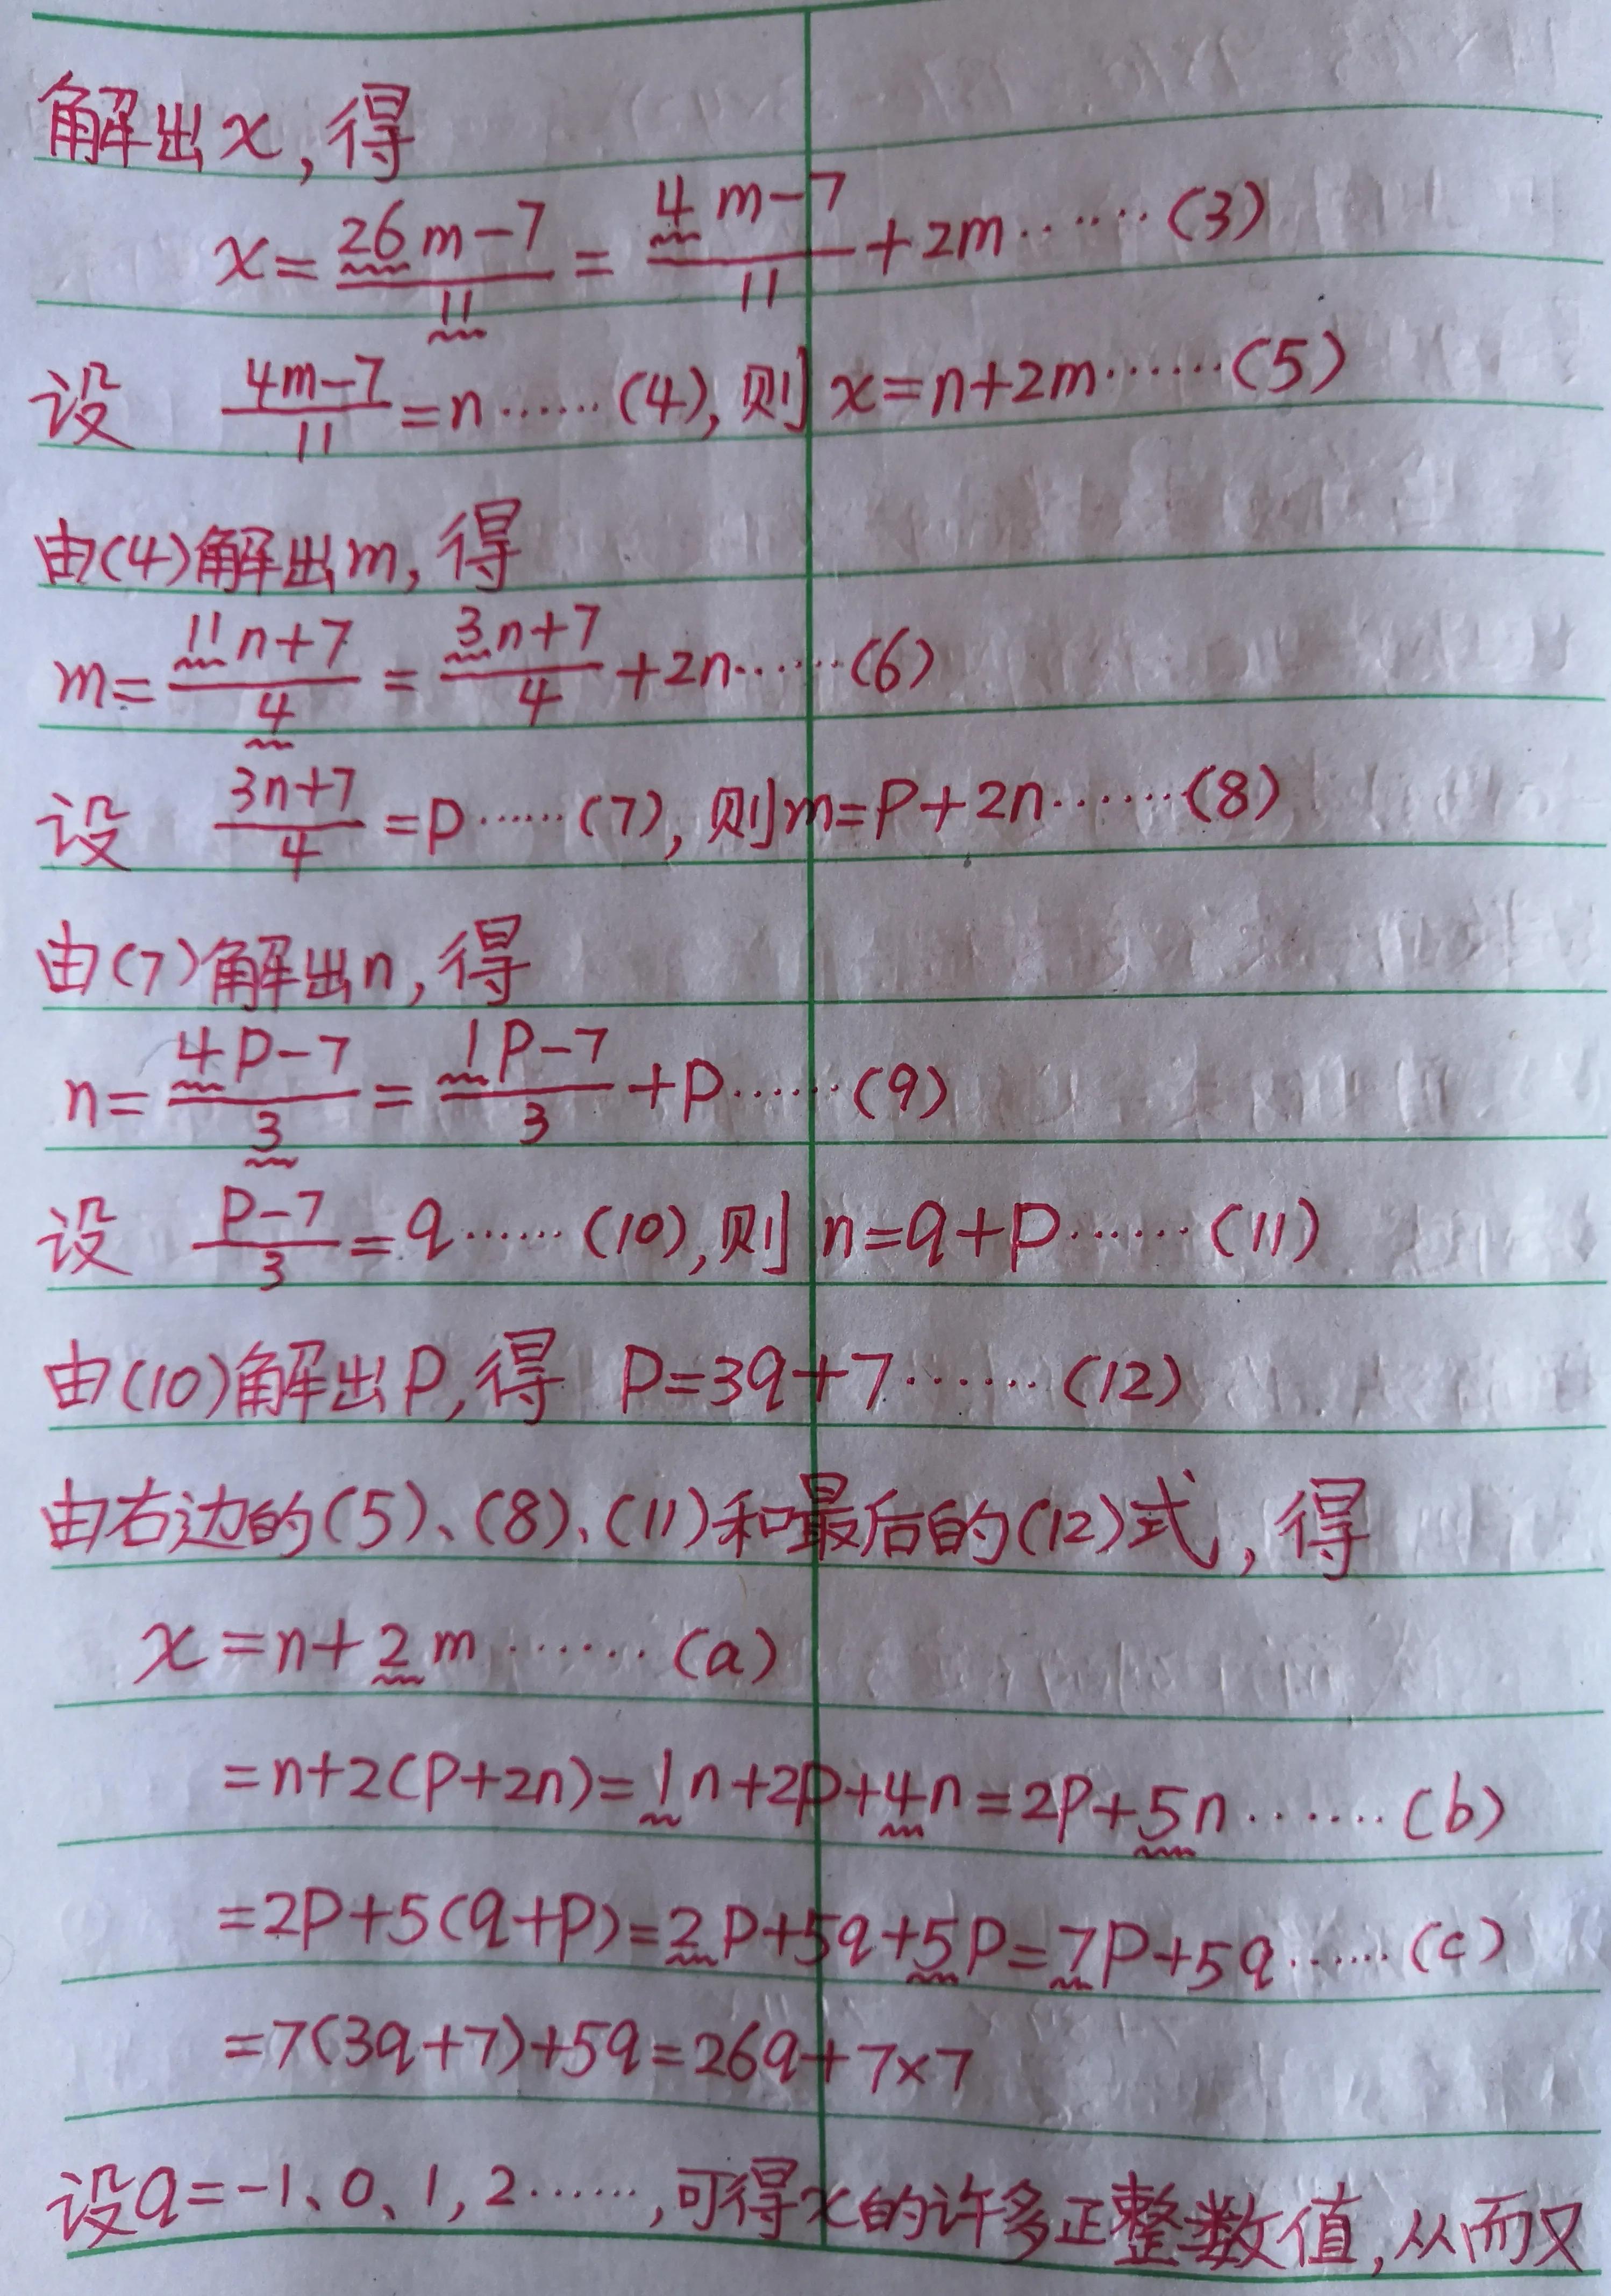 解出x,得
x=26m-7/11=4m-7/11+2m……(3)
设 4m-7/11=n……(4),则x=n+2m……(5)
由(4)解出m,得
m=11n+7/4=3n+7/4+2n……(6)
设 3n+7/4=P……(7),则m=P+2n……(8)
由(7)解出n,得
n=4P-7/3=1P-7/3+P……(9)
设 P-7/3=q……(10),则n=q+P……(11)
由(10)解出P,得 P=3q+7……(12)
由右边的(5)、(8)、(11)和最后的(12)式,得
x=n+2m……(a)
=n+2(P+2n)=1n+2P+4n=2P+5n……(b)
=2P+5(q+P)=2P+5q+5P=7P+5q……(c)
=7(3q+7)+5q=26q+7×7
设q=-1、0、1,2……,可得x的许多正整数值,从而又